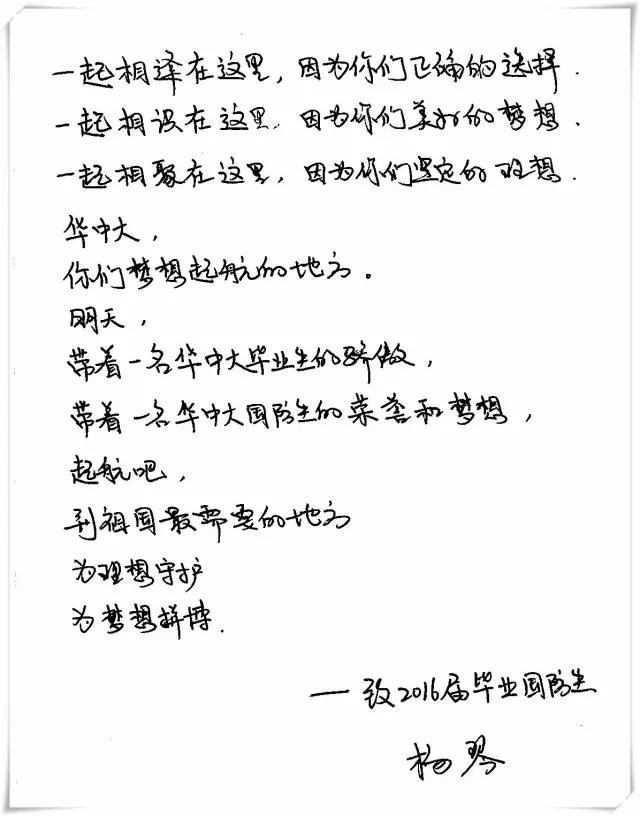 一起相逢在这里，因为你们正确的选择.
一起相识在这里，因为你们美好的梦想.
一起相聚在这里，因为你们坚定的理想.
华中大，
你们梦想起航的地方。
明天，
带着一名华中大毕业生的骄傲，
带着一名华中大国防生的荣誉和梦想，
起航吧，
到祖国最需要的地方
为理想守护
为梦想拼博.
——致2016届毕业国防生
杨琴